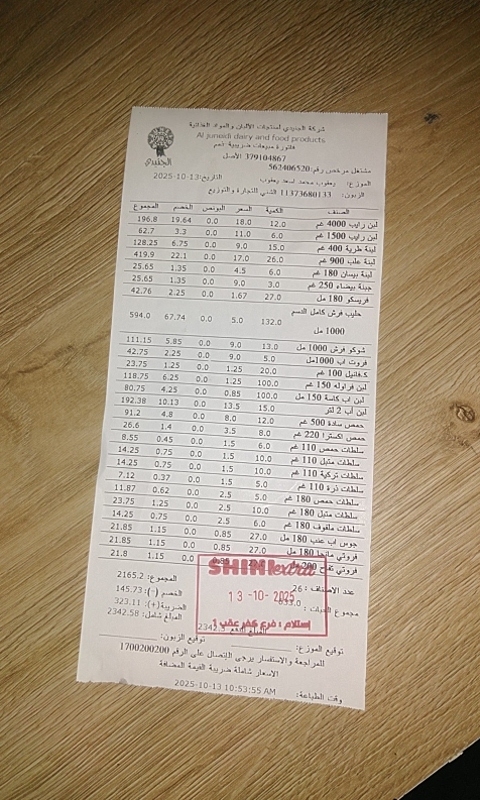 شركة الجنيدي لمنتجات الألبان والمواد الغذائية
Al juneidi dairy and food products
فاتورة مبيعات ضريبية نعم
379104867 الأصل
مشتغل مرخص رقم: 562406520
الموزع: يعقوب محمد اسعد يعقوب التاريخ: 2025-10-13
الزبون: 11373680133 الشني للتجارة والتوزيع
الجنيدي
الصنف الكمية السعر البونص الخصم المجموع
لبن رايب 4000 غم 12.0 18.0 0.0 19.64 196.8
لبن رايب 1500 غم 6.0 11.0 0.0 3.3 62.7
لبنة طرية 400 غم 15.0 9.0 0.0 6.75 128.25
لبنة علب 900 غم 26.0 17.0 0.0 22.1 419.9
لبنة بيسان 180 غم 6.0 4.5 0.0 1.35 25.65
جبنة بيضاء 250 غم 3.0 9.0 0.0 1.35 25.65
فريسكو 180 مل 27.0 1.67 0.0 2.25 42.76
حليب فرش كامل الدسم 1000 مل 132.0 5.0 0.0 67.74 594.0
شوكو فرش 1000 مل 13.0 9.0 0.0 5.85 111.15
فروت اب 1000مل 5.0 9.0 0.0 2.25 42.75
100 غم 20.0 1.25 0.0 1.25 23.75
لبن فراوله 150 غم 100.0 1.25 0.0 6.25 118.75
لبن اب كاسة 150 مل 100.0 0.85 0.0 4.25 80.75
لبن أب 2 لتر 15.0 13.5 0.0 10.13 192.38
حمص سادة 500 غم 12.0 8.0 0.0 4.8 91.2
حمص اكسترا 220 غم 8.0 3.5 0.0 1.4 26.6
سلطات حمص 110 غم 6.0 1.5 0.0 0.45 8.55
سلطات متبل 110 غم 10.0 1.5 0.0 0.75 14.25
سلطات تركية 110 غم 10.0 1.5 0.0 0.75 14.25
سلطات ذرة 110 غم 5.0 1.5 0.0 0.37 7.12
سلطات حمص 180 غم 5.0 2.5 0.0 0.62 11.87
سلطات متبل 180 غم 10.0 2.5 0.0 1.25 23.75
سلطات ملفوف 180 غم 6.0 2.5 0.0 0.75 14.25
جوس اب عنب 180 مل 27.0 0.85 0.0 1.15 21.85
فروتي مانجا 180 مل 27.0 0.85 0.0 1.15 21.85
فروتي تفاح 200 مل 0.85 0.0 1.15 21.8
SHINI extra
عدد الاصناف: 26 المجموع: 2165.2
13-10-2025
مجموع العبوات: الخصم (-): 145.73
الضريبة(+): 323.11
استلام: فرع كفر عقب 1
المبلغ شامل: 2342.58
توقيع الموزع: توقيع الزبون:
للمراجعة والاستفسار يرجى الإتصال على الرقم 1700200200
الاسعار شاملة ضريبة القيمة المضافة
وقت الطباعة: 2025-10-13 10:53:55 AM